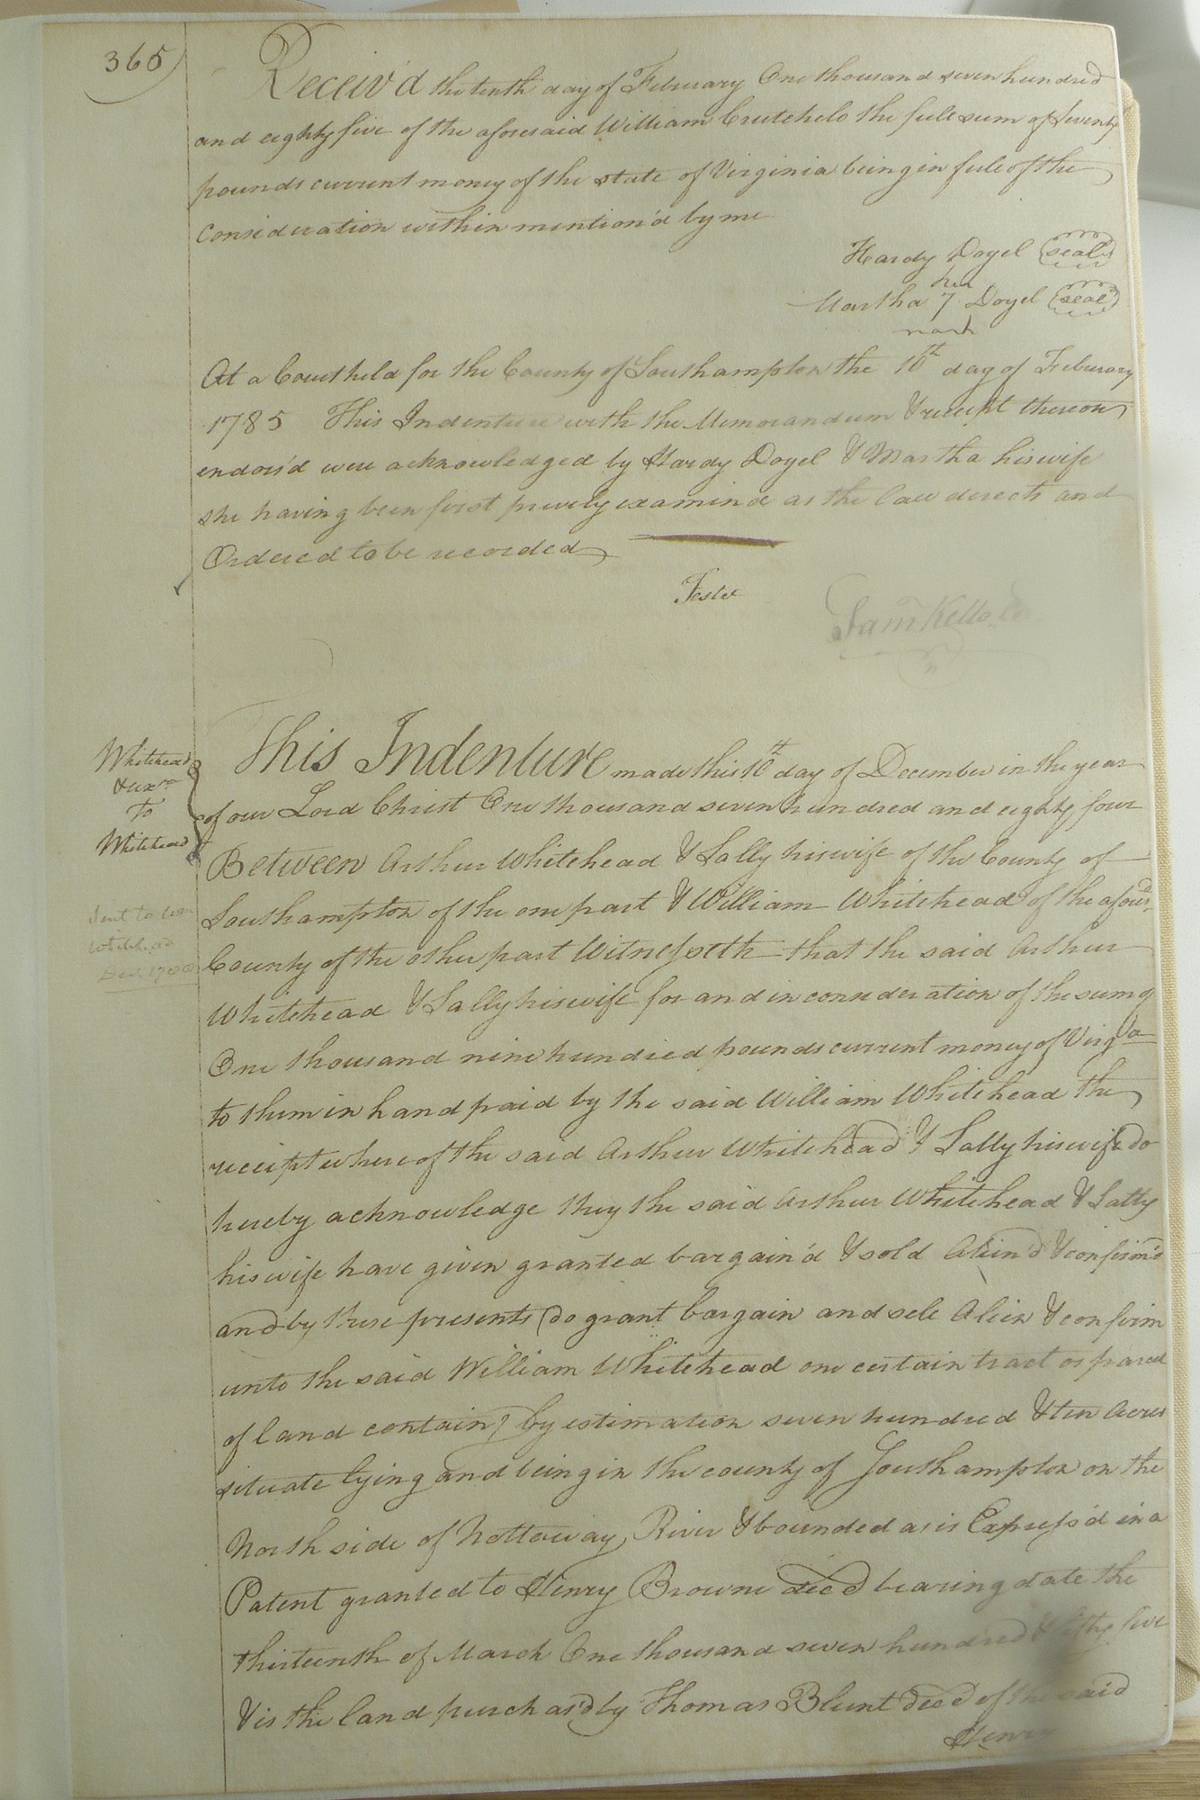 365
Receiv'd the tenth day of February One thousand seven hundred
and eighty five of the aforesaid William Crutchelo the full sum of seventy
pounds current money of the state of Virginia being in full of the
Consideration within mention'd by me
Hardy Doyel (seal)
her
Martha 7 Doyel (seal)
mark
At a Court held for the County of Southampton the 10th day of February
1785 This Indenture with the Memorandum & receipt thereon
endors'd were acknowledged by Hardy Doyel & Martha his wife
she having been first privily examined as the law directs and
Ordered to be recorded
Teste
Sam Kello
This Indenture made this 16th day of December in the year
of our Lord Christ One thousand seven hundred and eighty four
Between Arthur Whitehead & Sally his wife of the County of
Southampton of the one part & William Whitehead of the afoursd
County of the other part Witnesseth that the said Arthur
Whitehead & Sally his wife for and in consideration of the sum of
One thousand nine hundred pounds current money of Virga
to them in hand paid by the said William Whitehead the
receipt whereof the said Arthur Whitehead & Sally his wife do
hereby acknowledge they the said Arthur Whitehead & Sally
his wife have given granted bargain'd & sold Alien'd & confirm'd
and by these presents do grant bargain and sell Alien & confirm
unto the said William Whitehead one certain tract or parcel
of land containg by estimation seven hundred & ten Acres
situate lying and being in the county of Southampton on the
North side of Nottoway River & bounded as is Express'd in a
Patent granted to Henry Browne decd bearing date the
thirteenth of March One thousand seven hundred & fifty five
& is the land purchas'd by Thomas Blunt decd of the said
Henry
Whitehead
& uxr
To
Whitehead
Sent to Wm
Whitehead